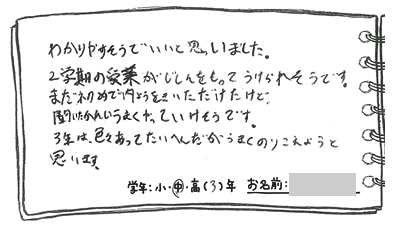 わかりやすそうでいいと思いました。
2学期の授業がじしんをもってうけられそうです。
まだ初めで内ようをきいただけだけど、
聞いたかんじうまくやっていけそうです。
3年は、色々あってたいへんだがうまくのりこえようと
思います。
学年:小・中・高(3)年 お名前: